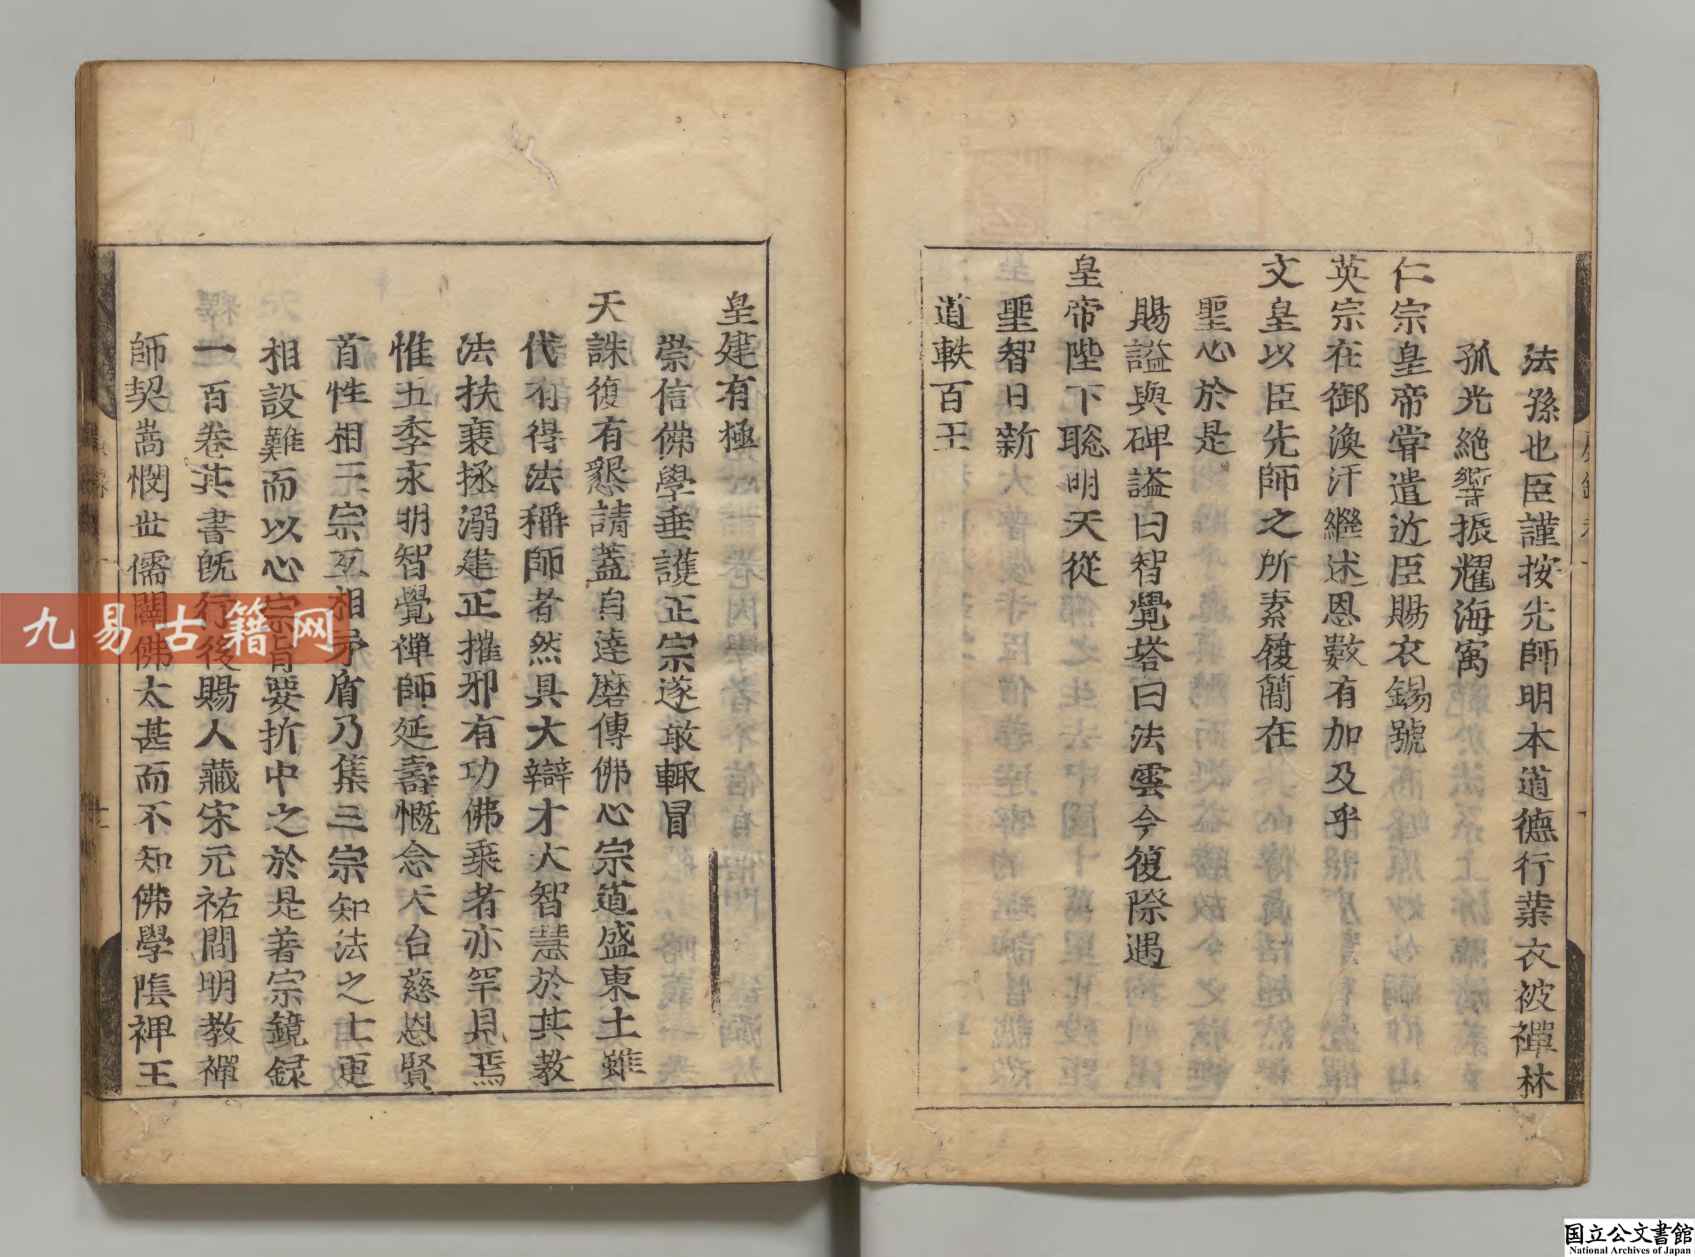 法孫也臣謹按先師明本道德行業衣被禪林
孤光絶響振耀海寓
仁宗皇帝甞遣近臣賜衣錫號
英宗在御渙汗繼述恩數有加及乎
文皇以臣先師之所素履簡在
聖心於是
賜謚與碑謚曰智覺塔曰法雲今復際遇
皇帝陛下聡明天從
聖智日新
道軼百王
皇建有極
崇信佛學垂護正宗遂敢輙冒
天誅復有懇請蓋自達磨傳佛心宗道盛東土雖
代有得法稱師者然具大辯才大智慧於其教
法扶衰拯溺建正摧邪有功佛乗者亦罕見焉
惟五季永明智覺禪師延壽慨念天台慈恩賢
首性相三宗互相矛盾乃集三宗知法之士更
相設難而以心宗旨要折中之於是著宗鏡録
一百卷其書旣行後賜人藏宋元祐間明教禪
師契嵩憫世儒闢佛太甚而不知佛學隂禆王
九易古籍网
国立公文書館
National Archives of Japan